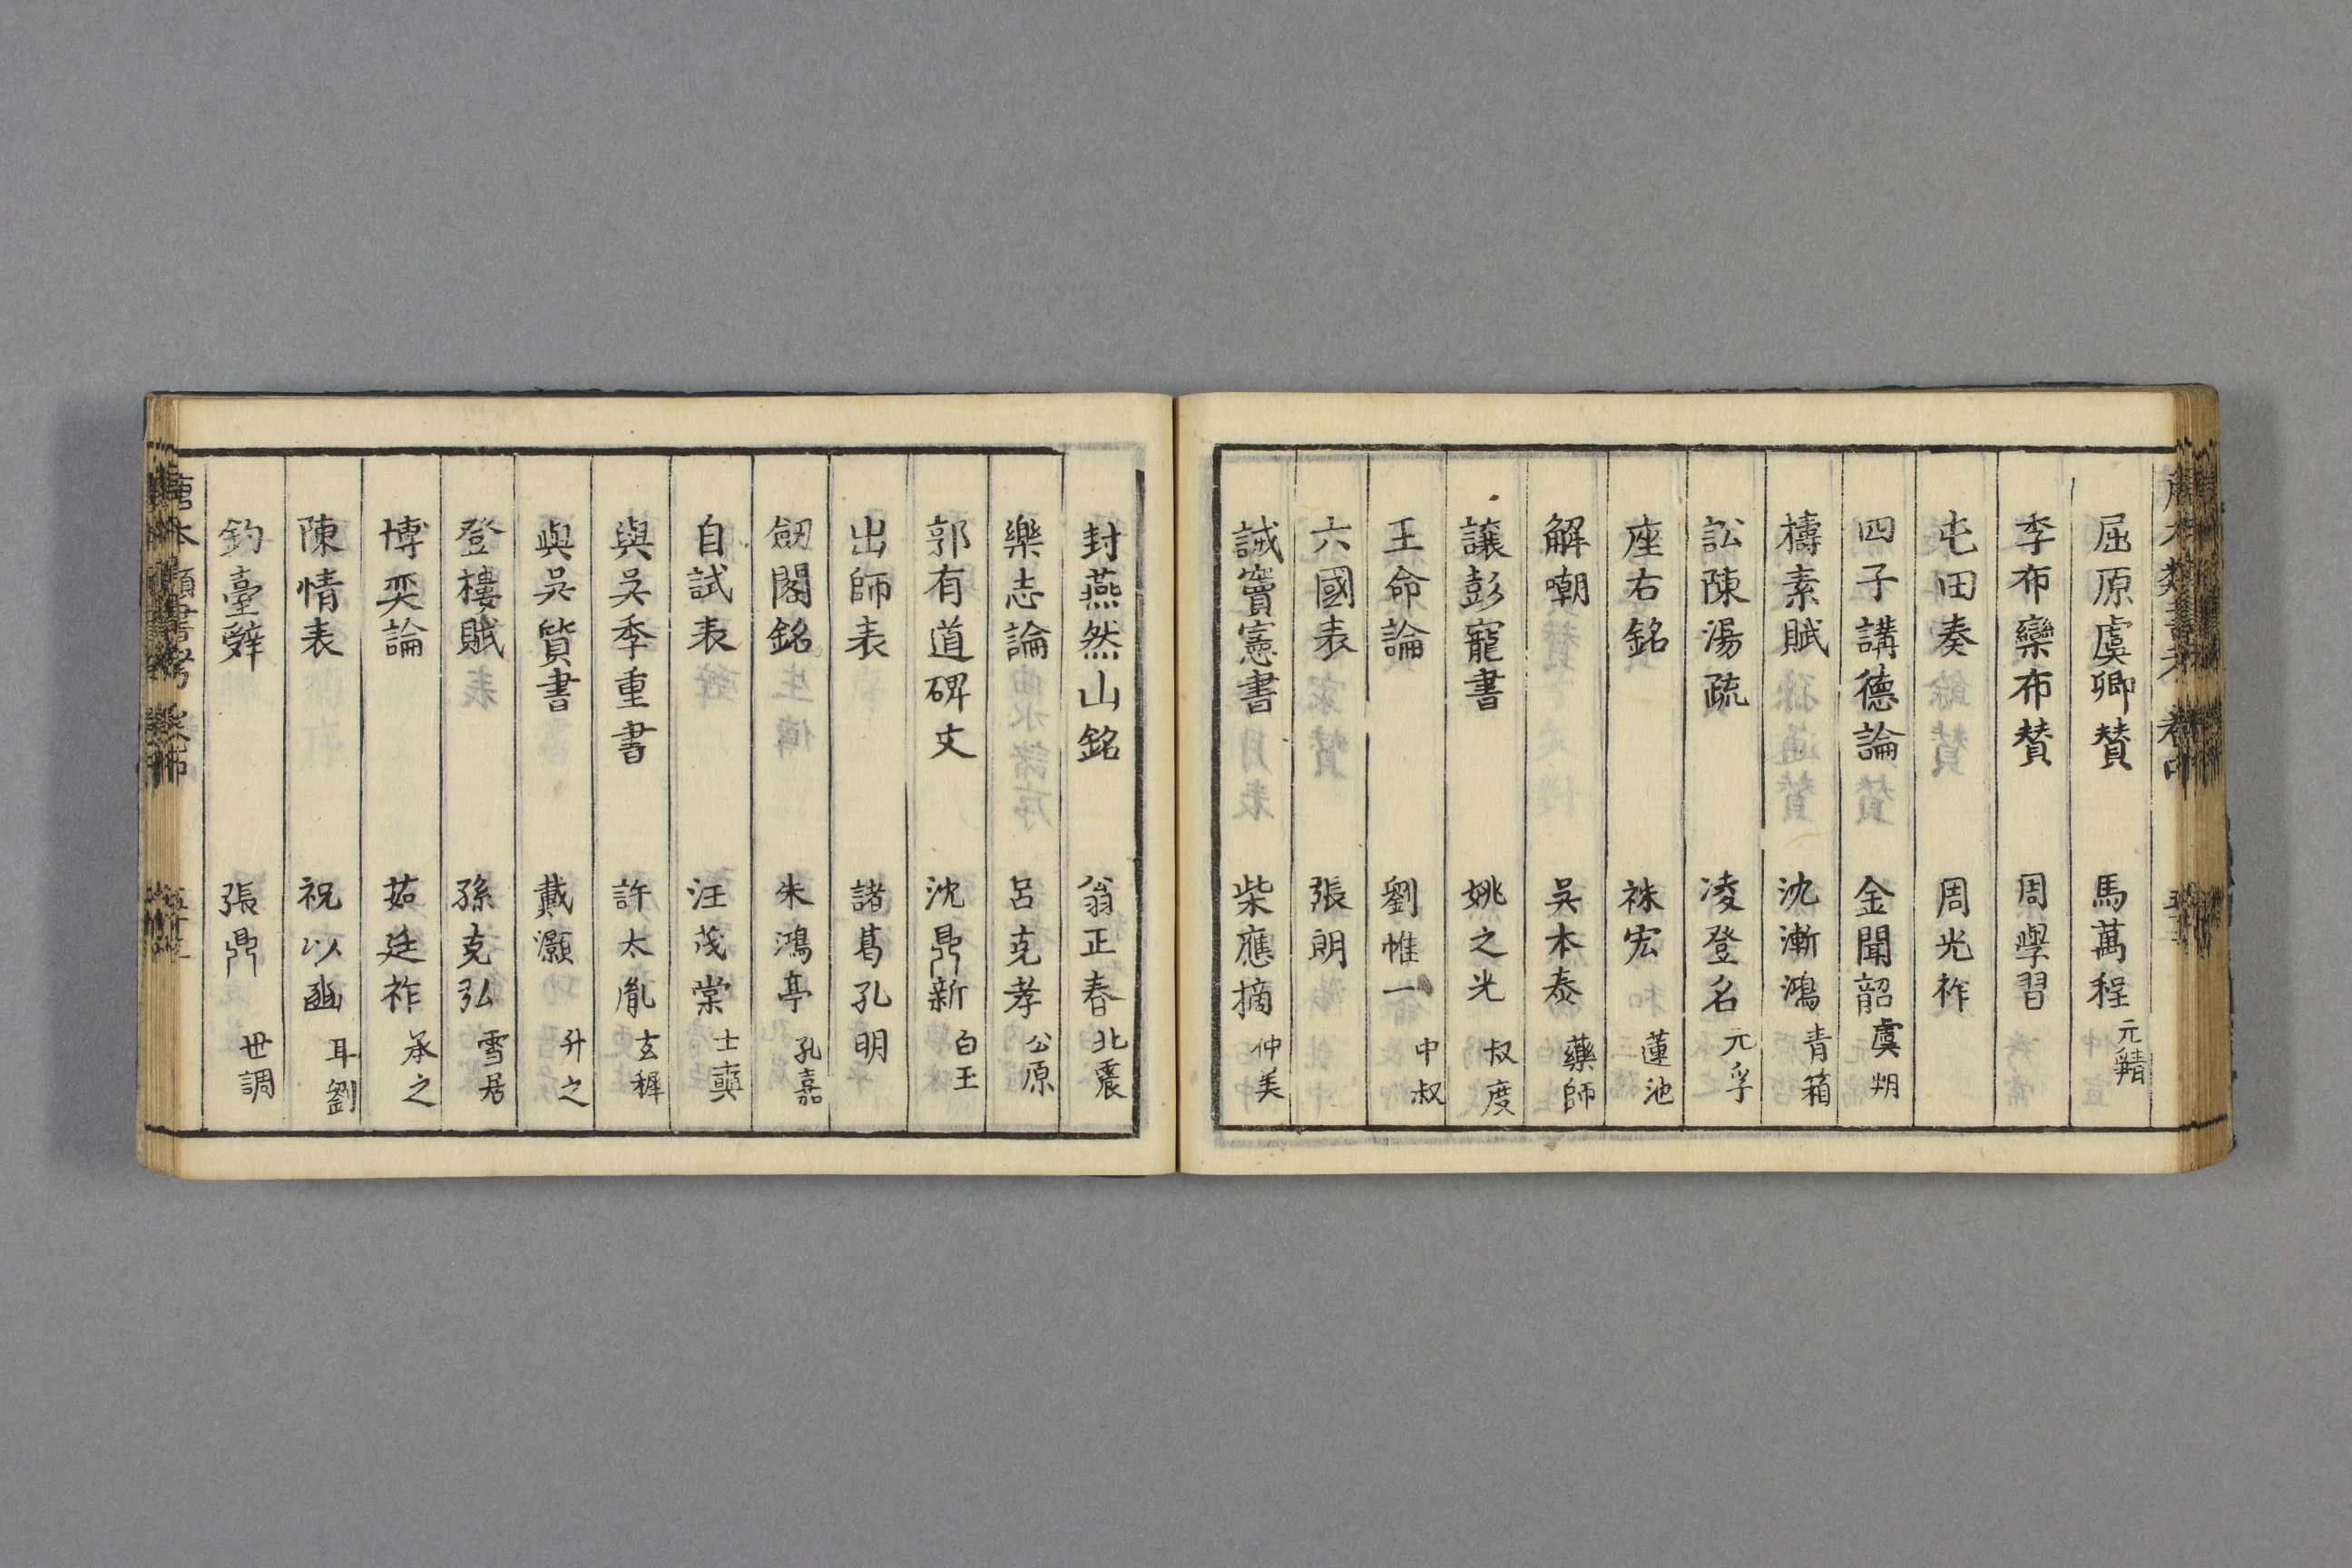 屈原虞卿贊 馬萬程 元精
季布欒布贊 周學習
屯田奏 周光祚
四子講德論 金聞韶 虞朔
檮素賦 沈漸鴻 青箱
訟陳湯疏 凌登名 元孚
座右銘 袾宏 蓮池
解嘲 吳本泰 藥師
讓彭寵書 姚之光 叔度
王命論 劉惟一 中叔
六國表 張朗
誡竇憲書 柴應摘 仲美
封燕然山銘 翁正春 北震
樂志論 呂克孝 公原
郭有道碑文 沈鼎新 白玉
出師表 諸葛孔明
劒閣銘 朱鴻亭 孔嘉
自試表 汪茂棠 士奭
與吳季重書 許太胤 玄穉
與吳質書 戴灝 升之
登樓賦 孫克弘 雪居
博奕論 茹廷祚 承之
陳情表 祝以豳 耳劉
釣臺辭 張鼎 世調